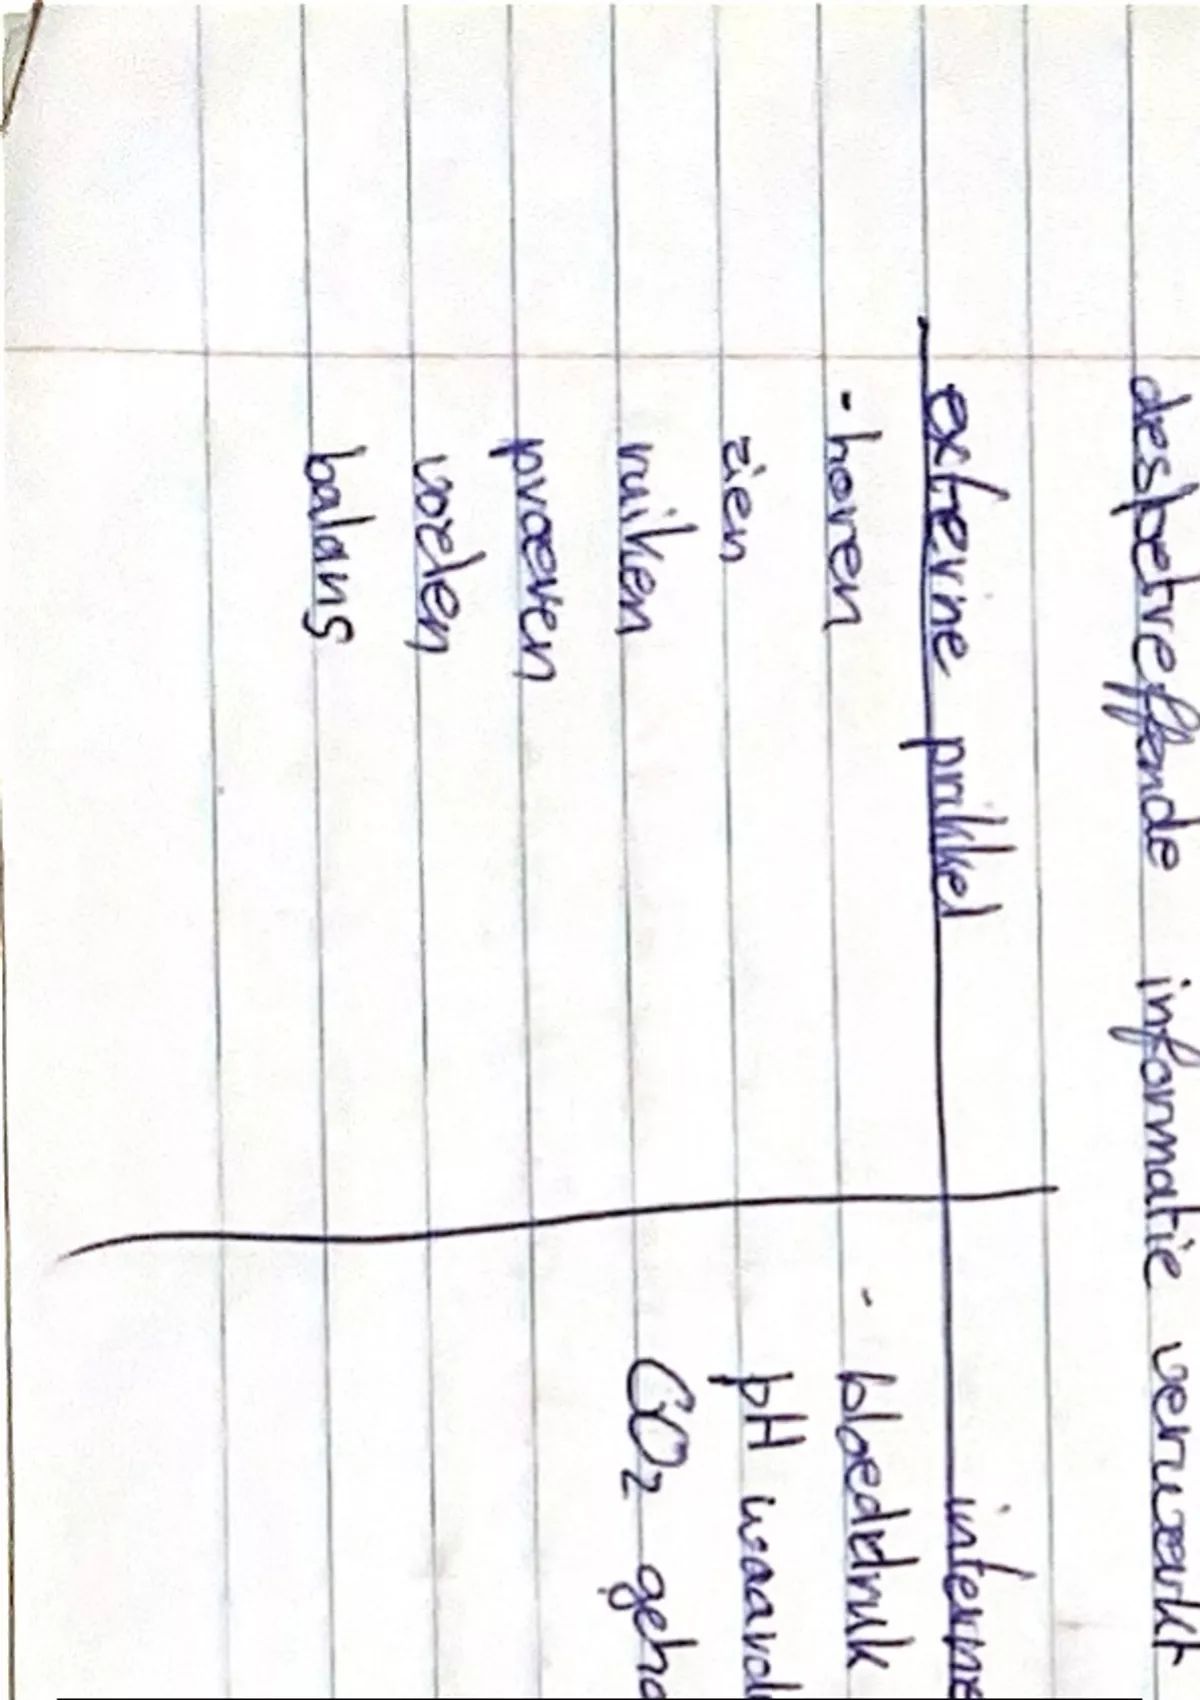 desbetreffende informatie verwerkt
externe prikkel interne
- horen - bloeddruk
zien pH waard
ruiken CO2 geha
proeven
voelen
balans